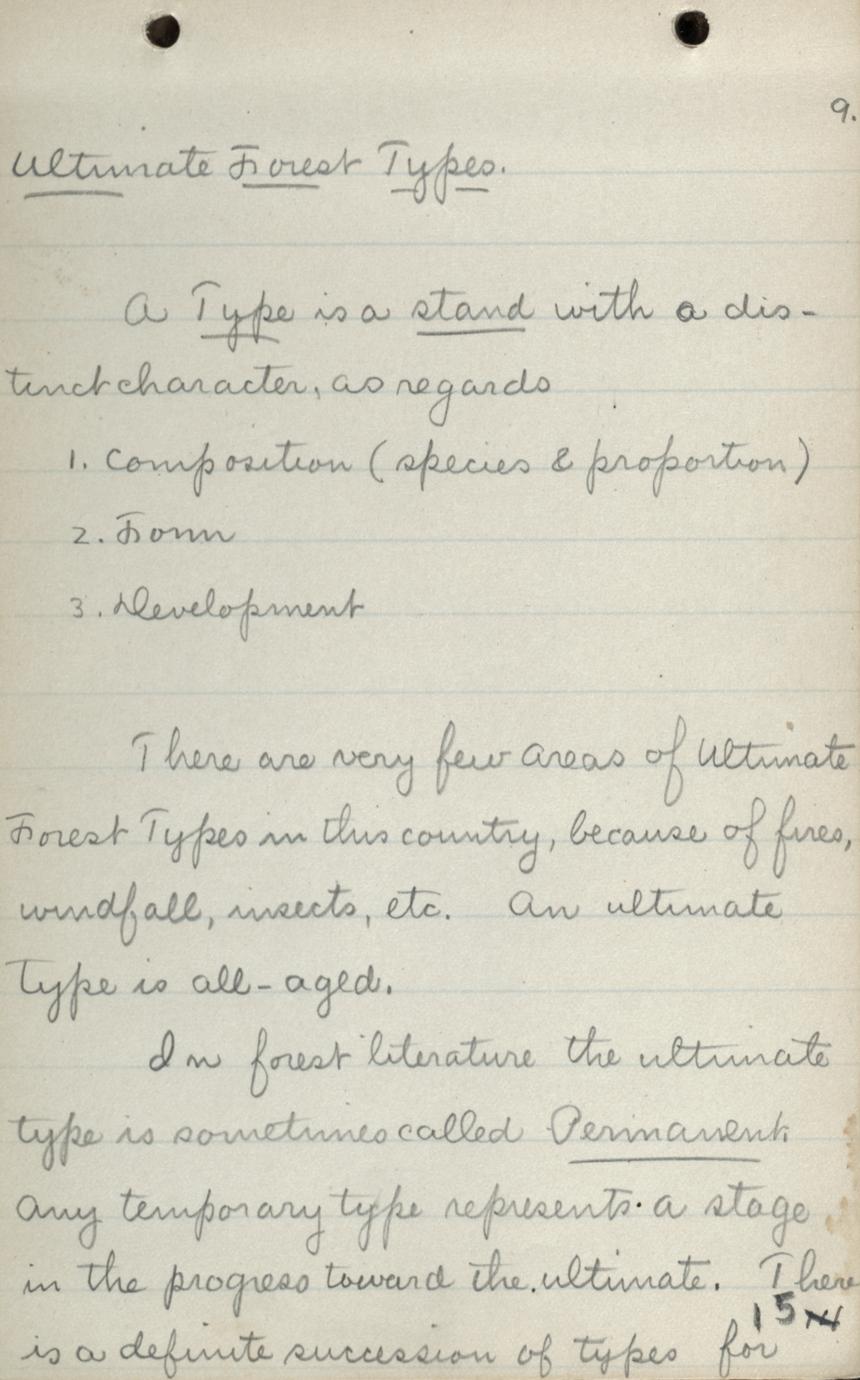 9.
Ultimate Forest Types.
A Type is a stand with a dis-
tinct character, as regards
1. Composition (species & proportion)
2. Form
3. Development
There are very few areas of Ultimate
Forest Types in this country, because of fires,
windfall, insects, etc. An ultimate
type is all-aged.
In forest literature the ultimate
type is sometimes called Permanent.
Any temporary type represents a stage
in the progress toward the ultimate. There
15
is a definite succession of types for